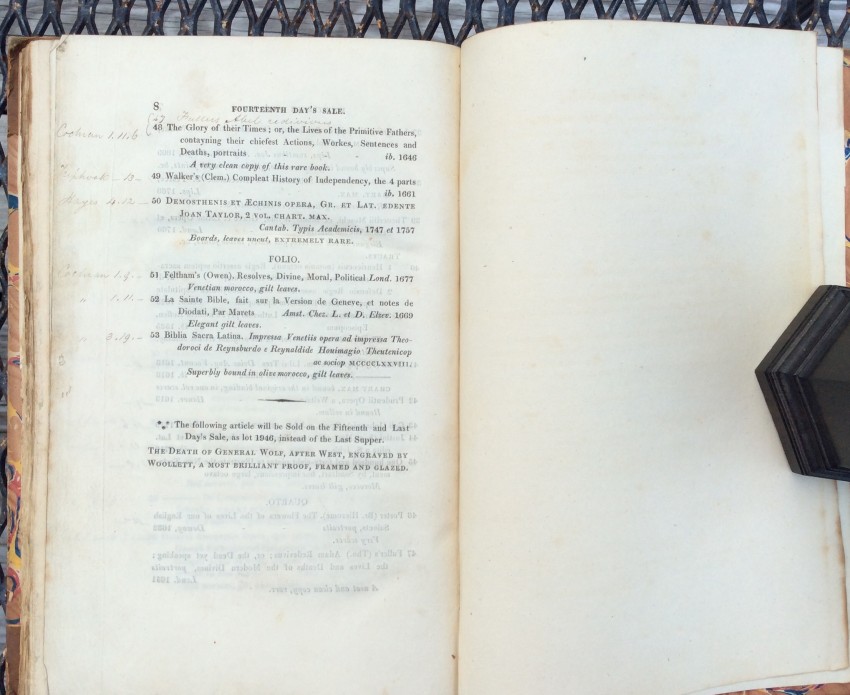 8
FOURTEENTH DAY'S SALE.
47 Fullers Abel redivivus
Cochran 1.11.6
48 The Glory of their Times; or, the Lives of the Primitive Fathers,
contayning their chiefest Actions, Workes, Sentences and
Deaths, portraits - - ib. 1646
A very clean copy of this rare book.
- 13 -
49 Walker's (Clem.) Compleat History of Independency, the 4 parts
ib. 1661
50 DEMOSTHENIS ET ÆCHINIS OPERA, GR. ET LAT. EDENTE
IOAN TAYLOR, 2 VOL. CHART. MAX.
Cantab. Typis Academicis, 1747 et 1757
Boards, leaves uncut, EXTREMELY RARE.
FOLIO.
Cochran 1.9.-
51 Feltham's (Owen), Resolves, Divine, Moral, Political Lond. 1677
Venetian morocco, gilt leaves.
1.11.-
52 La Sainte Bible, fait sur la Version de Geneve, et notes de
Diodati, Par Marets Amst. Chez. L. et D. Elsev. 1669
Elegant gilt leaves.
3.19.-
53 Biblia Sacra Latina. Impressa Venetiis opera ad impressa Theo-
doroci de Reynsburdo e Reynaldide Houimagio Theutenicop
ac sociop MCCCCLXXVIII.
Superbly bound in olive morocco, gilt leaves.
*** The following article will be Sold on the Fifteenth and Last
Day's Sale, as lot 1946, instead of the Last Supper.
THE DEATH OF GENERAL WOLF, AFTER WEST, ENGRAVED BY
WOOLLETT, A MOST BRILLIANT PROOF, FRAMED AND GLAZED.